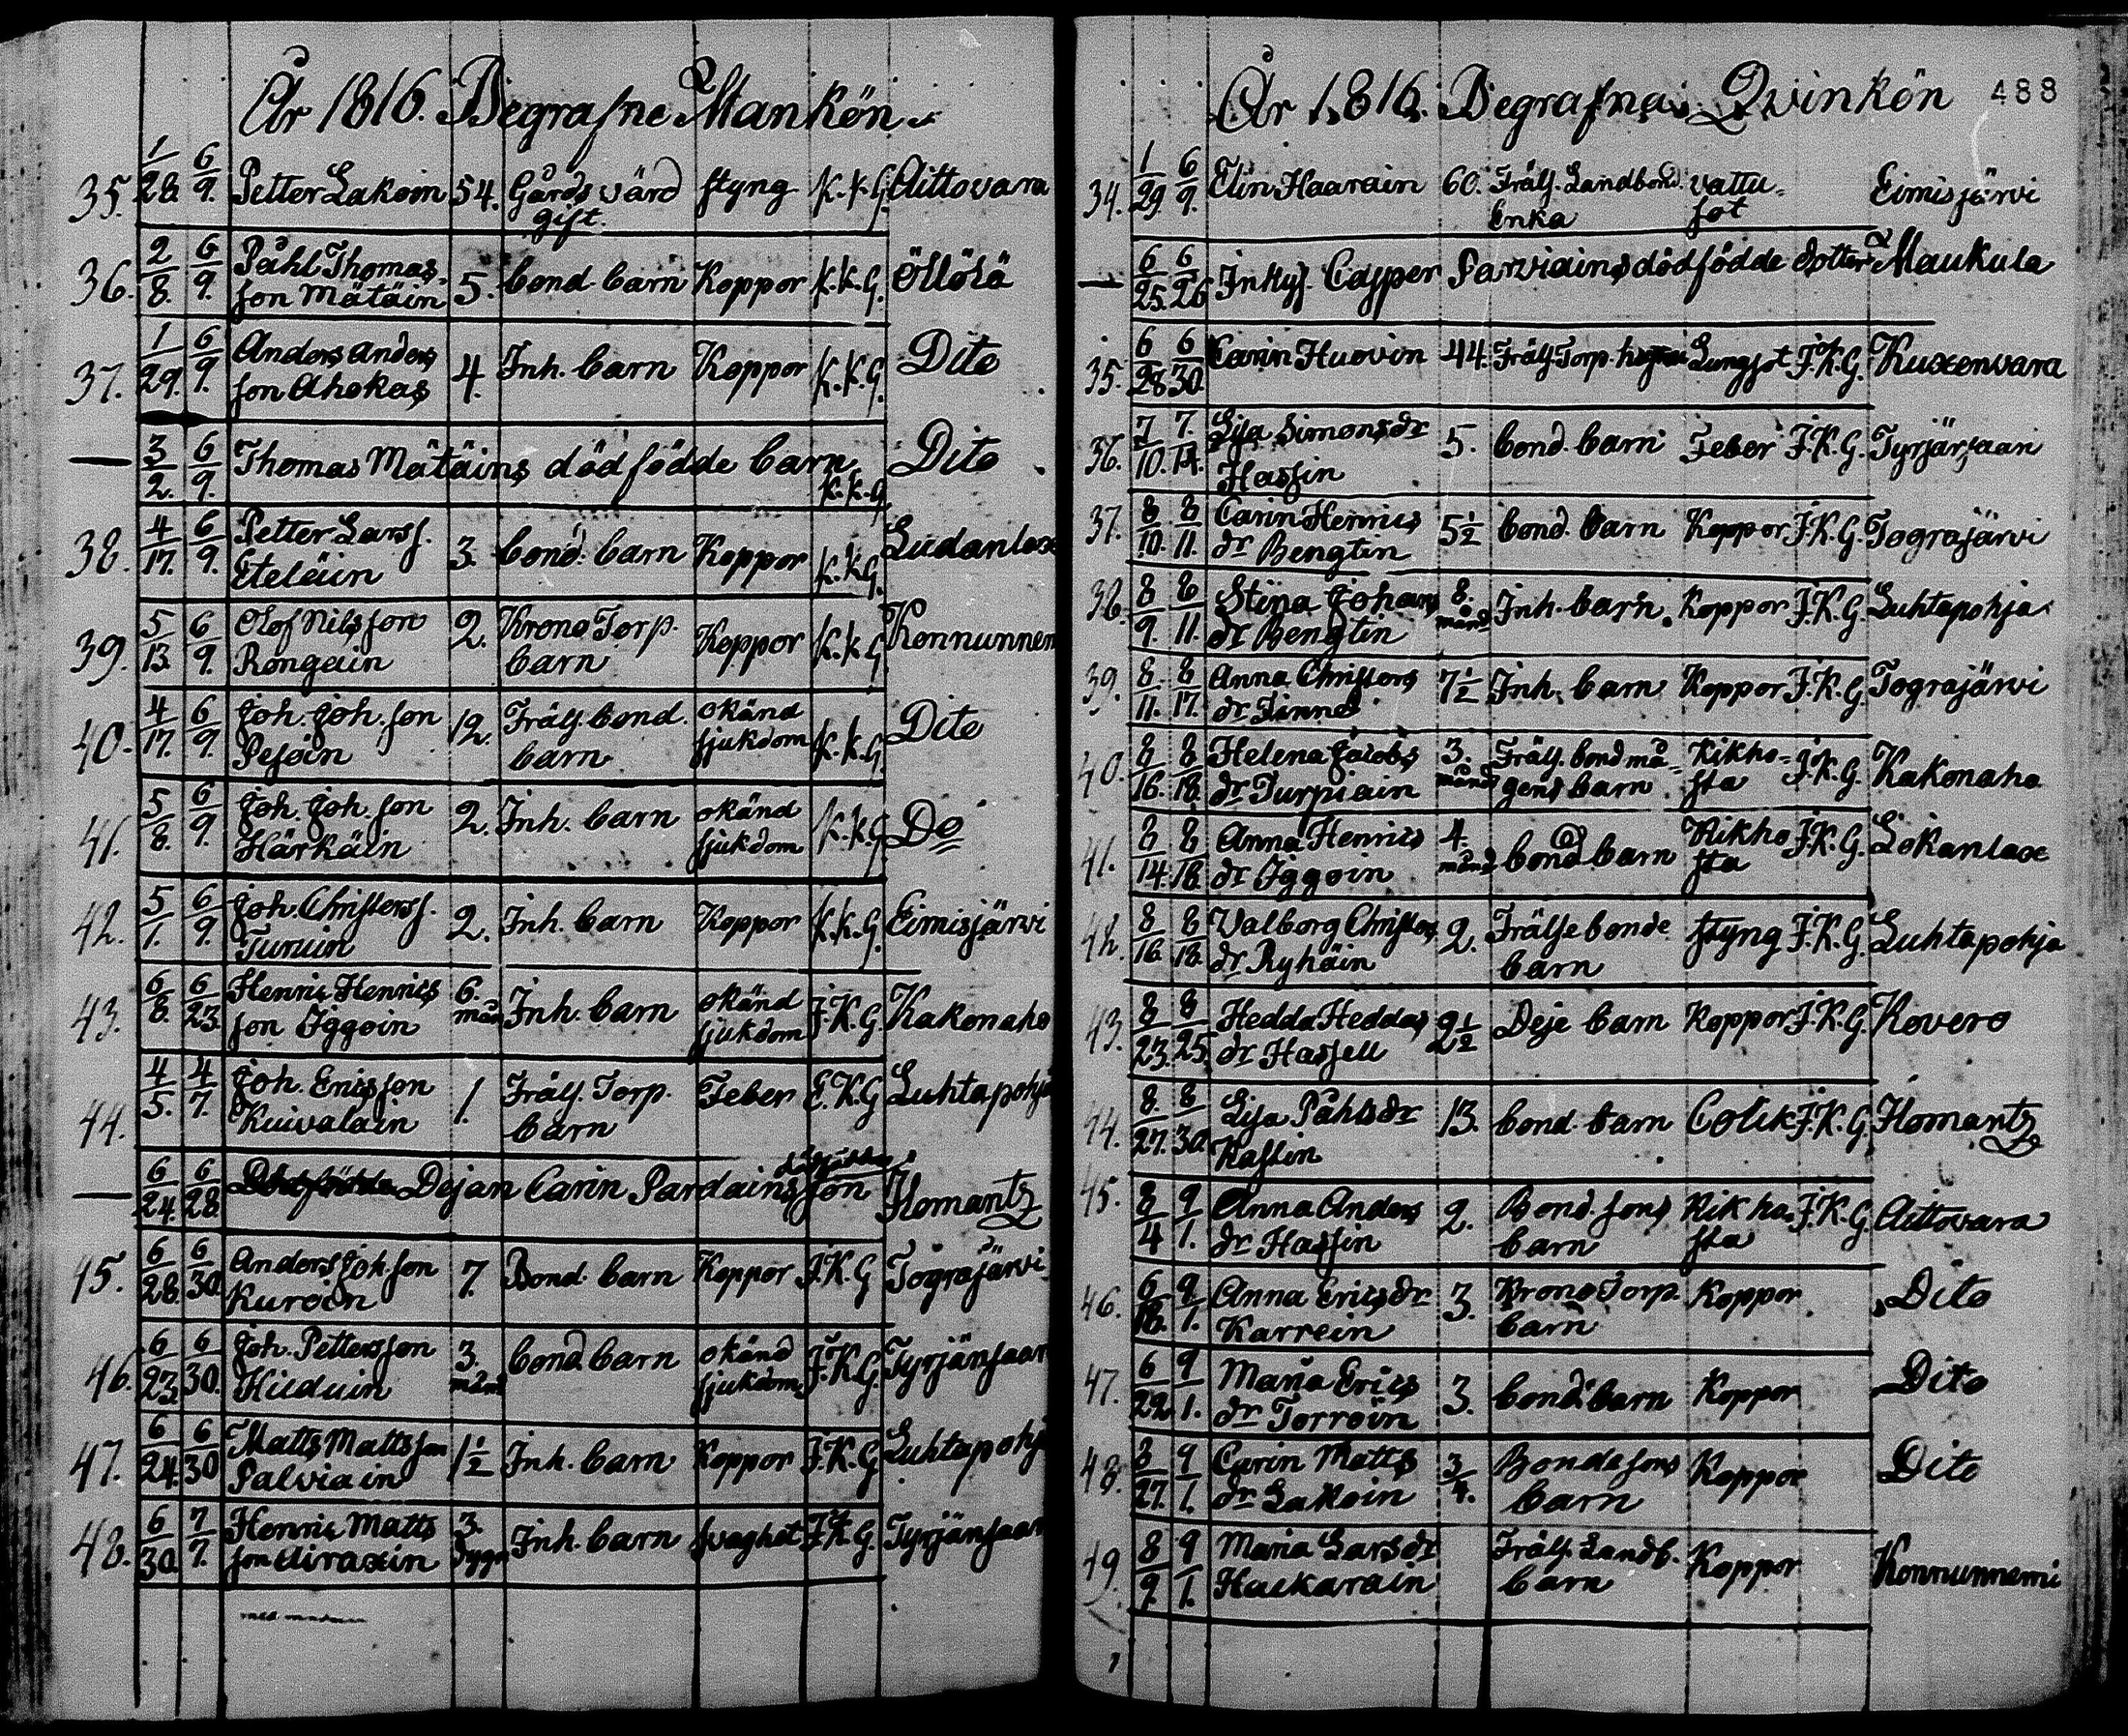 År 1816. Begrafne Mankön
35. 1/28. 6/9. Petter Lakoin 54. Gårds värd gift. styng K.K.G. Aittovara
36. 2/8. 6/9. Påhl Thomas-
son Mätäin 5. bond. barn Koppor K.K.G. Öllölä
37. 1/29. 6/9. Anders Anders
son Ahokas 4. Inh. barn Koppor K.K.G. Dito
— 3/2. 6/9. Thomas Mätäins dödfödde barn K.K.G. Dito
38. 4/17. 6/9. Petter Larss.
Eteläin 3. bond. barn Koppor K.K.G. Ludanlax
39. 5/13. 6/9. Olof Nilsson
Rongain 2. Krono Torp.
barn Koppor K.K.G. Konnunnem
40. 4/17. 6/9. Joh. Joh. son
Pesöin 12. Fräls. bond.
barn okänd
sjukdom K.K.G. Dito
41. 5/8. 6/9. Joh. Joh. son
Härkäin 2. Inh. barn okänd
sjukdom K.K.G. Do
42. 5/1. 6/9. Joh. Christerss.
Turuin 2. Inh. barn Koppor K.K.G. Eimisjärvi
43. 6/8. 6/23. Henric Henrics
son Iggoin 6.
mån Inh. barn okänd
sjukdom J.K.G. Kakonaho
44. 4/5. 4/7. Joh. Ericsson
Kuivalain 1. Fräls. Torp.
barn Feber E.K.G. Luhtapohja
— 6/24. 6/28. Dejan Carin Pardains son Ilomantz
45. 6/28. 6/30. Anders Joh. son
Kuroin 7. Bond. barn Koppor J.K.G. Tograjärvi
46. 6/23. 6/30. Joh. Pettersson
Hilduin 3.
mån bond. barn okänd
sjukdom J.K.G. Tyrjänsaar
47. 6/24. 6/30 Matts Mattsson
Palviain 1½ Inh. barn Koppor J.K.G. Luhtapohj
48. 6/30. 7/7. Henric Matts
son Airaxin 3.
dygn Inh. barn svaghet J.K.G. Tyrjänsaar
År 1816. Begrafna Qvinkön 488
34. 1/29. 6/9. Elin Haarain 60. Fräls. Landbond.
Enka vattu-
sot Eimisjärvi
— 6/25. 6/26 Inhys. Casper Parviains dödfödde dotter Maukula
35. 6/28. 6/30. Carin Huovin 44. Fräls. Torp. Lungsot J.K.G. Kuxenvara
36. 7/10. 7/14. Lisa Simonsdr
Hassin 5. bond. barn Feber J.K.G. Tyrjänsaari
37. 8/10. 8/11. Carin Henrics
dr Bengtin 5½ bond. barn Koppor J.K.G. Tograjärvi
38. 8/9. 8/11. Stina Johans
dr Bengtin 8.
månd Inh. barn. Koppor J.K.G. Luhtapohja
39. 8/11. 8/17. Anna Christers
dr Sinne 7½ Inh. barn Koppor J.K.G. Tograjärvi
40. 8/16. 8/18. Helena Jacobs
dr Turpiain 3.
månd Fräls. bondmå-
gens barn Kikho-
sta J.K.G. Kakonaho
41. 8/14. 8/18. Anna Henrics
dr Iggoin 4.
månd bond. barn Kikho
sta J.K.G. Lokanlax
42. 8/16. 8/18. Valborg Christers
dr Ryhäin 2. Frälse bonde
barn styng J.K.G. Luhtapohja
43. 8/23. 8/25. Hedda Heddas
dr Hassell 2½ Deje barn Koppor J.K.G. Kovero
44. 8/27. 8/30. Lisa Påhlsdr
Kastin 13. bond. barn Colik J.K.G. Ilomantz
45. 8/4 9/1. Anna Anders
dr Hassin 2. Bond. sons
barn Kikho
sta J.K.G. Aittovara
46. 6/18. 9/1. Anna Ericsdr
Karrein 3. Krono Torp.
barn Koppor Dito
47. 6/22. 9/1. Maria Erics
dr Torroin 3. bond. barn Koppor Dito
48. 8/27. 9/1. Carin Matts
dr Lakoin 3/4. Bonde sons
barn Koppor Dito
49. 8/9. 9/1. Maria Larsdr
Haukarain Fräls. Landb.
barn Koppor Konnunnemi